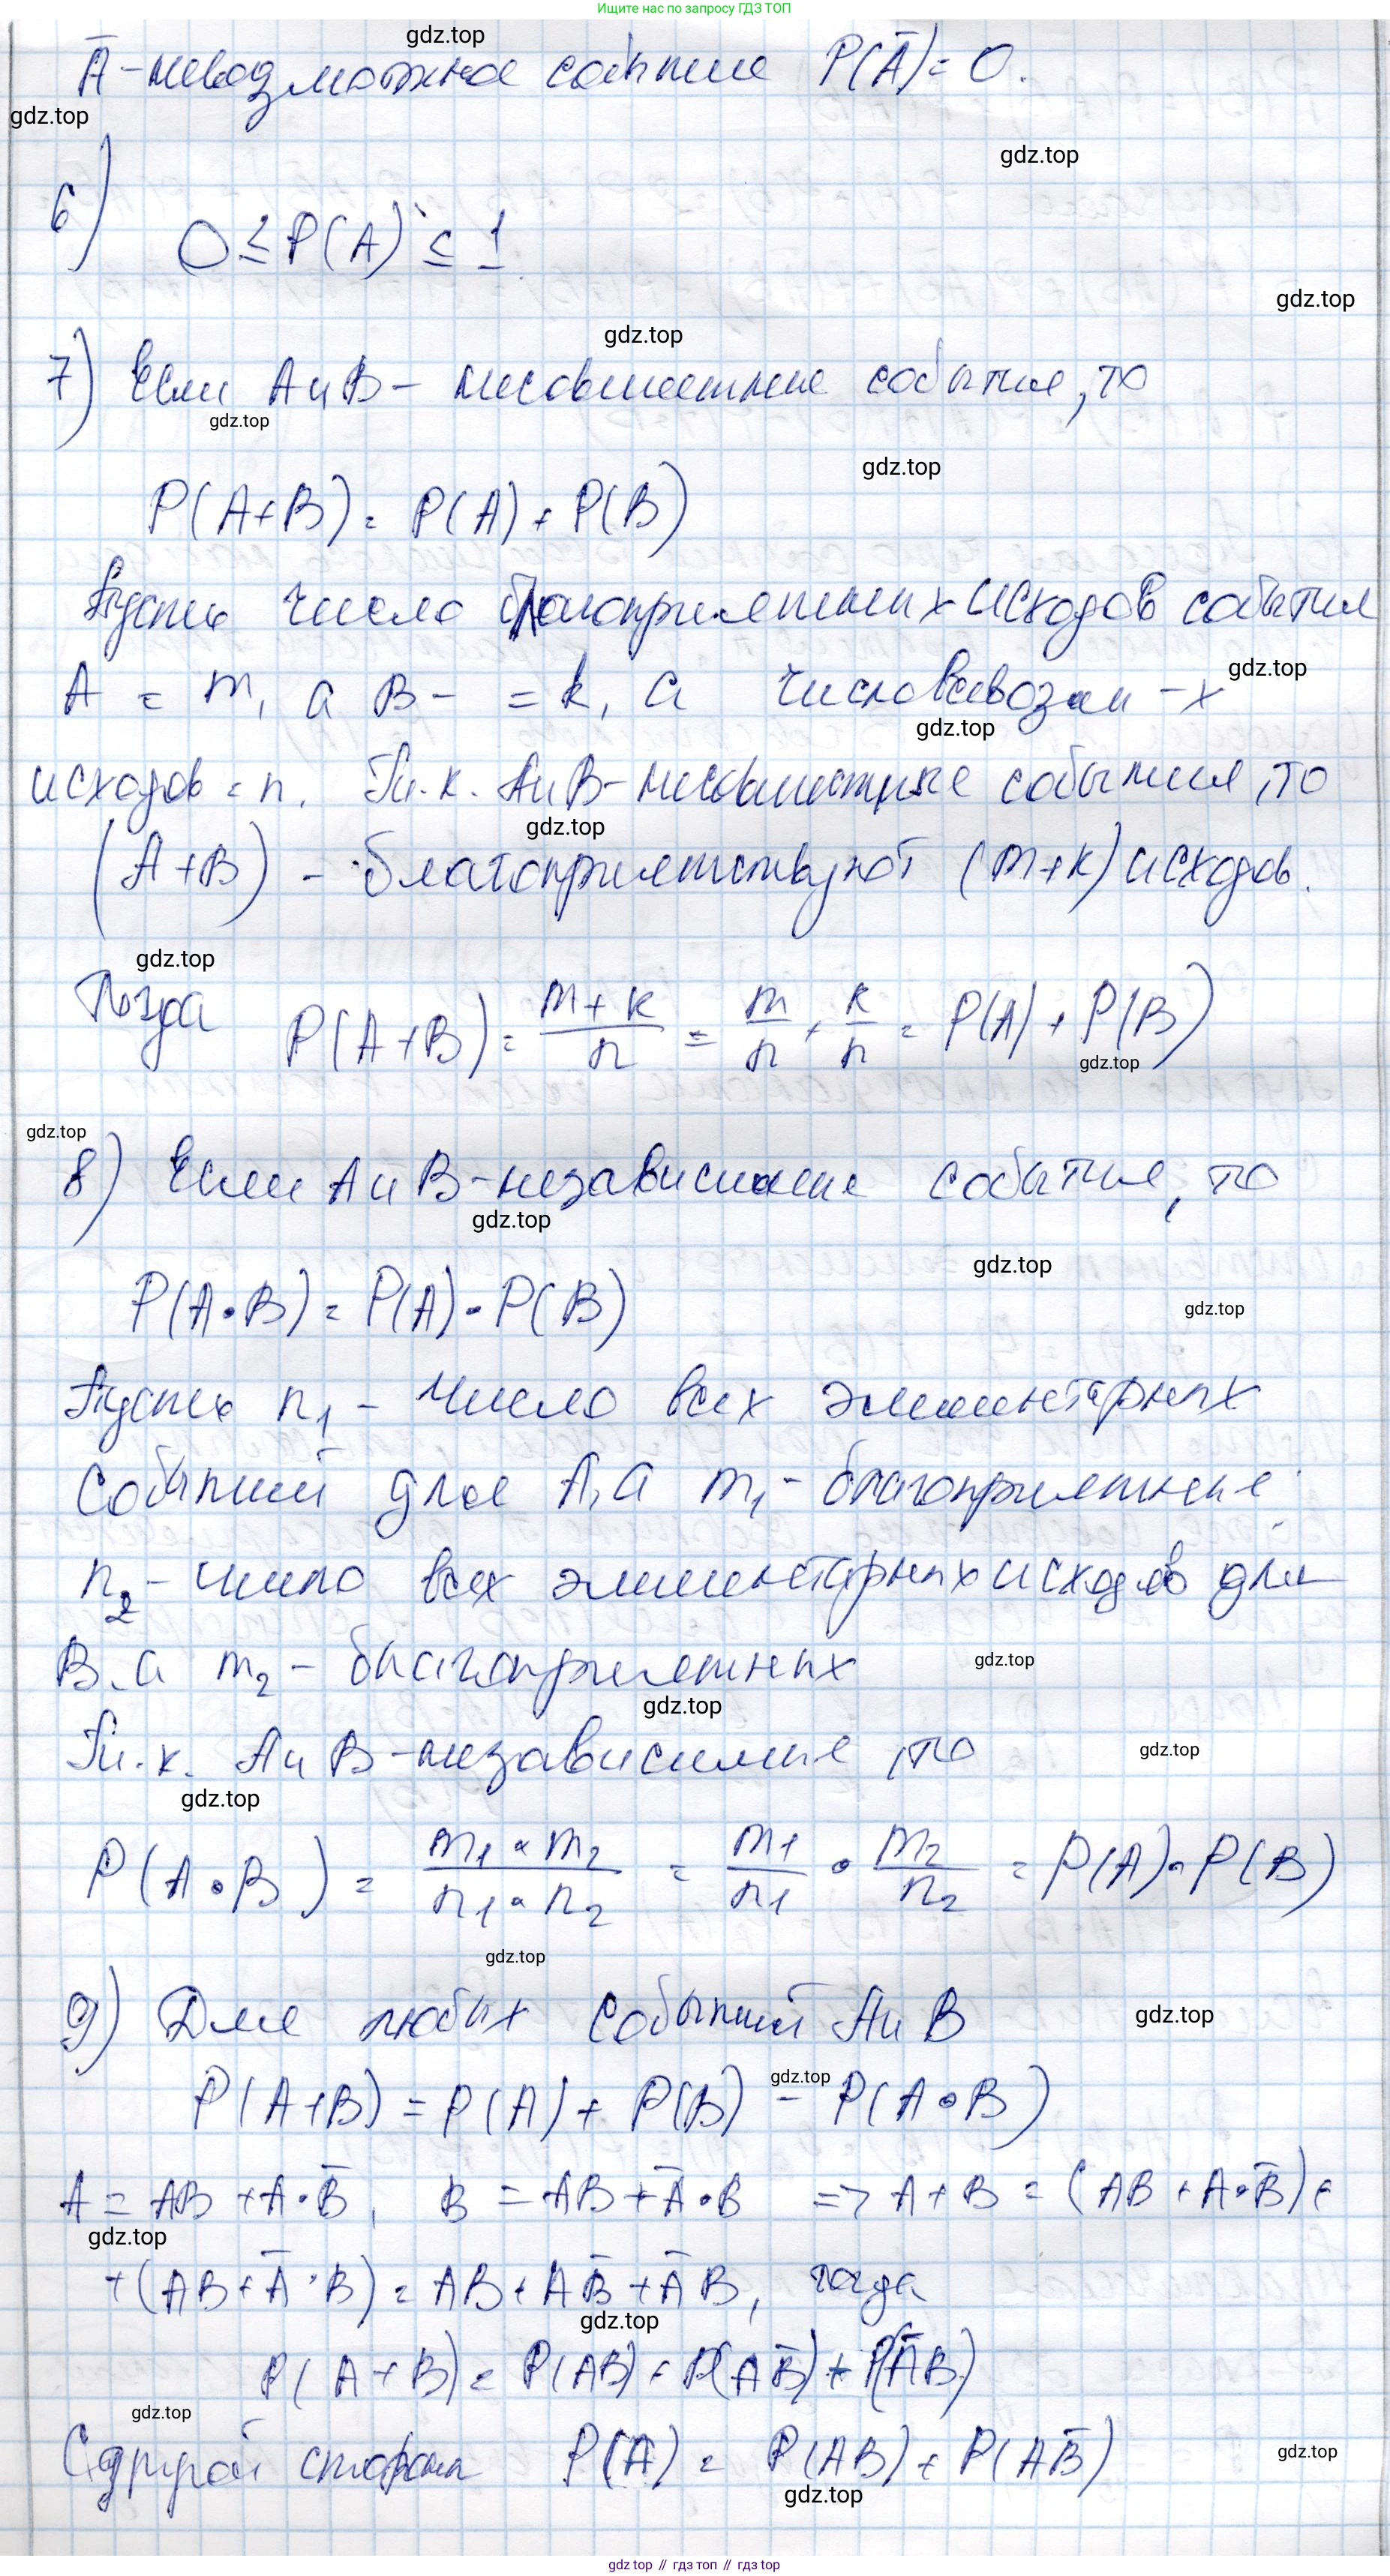 Ищите нас по запросу ГДЗ ТОП
gdz.top
Ā - невозможное событие P(Ā) = 0.
gdz.top
gdz.top
6) 0 ≤ P(A) ≤ 1
gdz.top
gdz.top
7) Если A и B - несовместные события, то
gdz.top
gdz.top
P(A+B) = P(A) + P(B)
Пусть число благоприятных исходов события
A = m, а B - = k, а число всевозм-х
gdz.top
gdz.top
исходов = n. Т.к. A и B - несовместные события, то
gdz.top
(A+B) - благоприятствуют (m+k) исходов.
gdz.top
Тогда P(A+B) = (m+k)/n = m/n + k/n = P(A) + P(B)
gdz.top
gdz.top
8) Если A и B - независимые события, то
gdz.top
gdz.top
P(A·B) = P(A)·P(B)
gdz.top
Пусть n₁ - число всех элементарных
событий для A, а m₁ - благоприятные
n₂ - число всех элементарных исходов для
B, а m₂ - благоприятных
gdz.top
gdz.top
Т.к. A и B - независимые, то
gdz.top
gdz.top
P(A·B) = (m₁·m₂)/(n₁·n₂) = m₁/n₁ · m₂/n₂ = P(A)·P(B)
gdz.top
9) Для любых событий A и B
gdz.top
gdz.top
P(A+B) = P(A) + P(B) - P(A·B)
A = AB + A·B̄, B = AB + Ā·B => A+B = (AB + A·B̄) +
gdz.top
+ (AB + Ā·B) = AB + AB̄ + ĀB, тогда
gdz.top
P(A+B) = P(AB) + P(AB̄) + P(ĀB)
gdz.top
С другой стороны P(A) = P(AB) + P(AB̄)
gdz.top
gdz.top
gdz.top // гдз топ // гдз.top